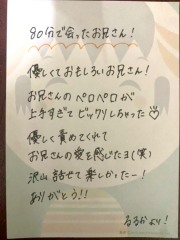 80分で会ったお兄さん!
優しくておもしろいお兄さん!
お兄さんのペロペロが
上手すぎてビックリしちゃった
優しく責めてくれて
お兄さんの愛を感じたヨ(笑)
沢山話せて楽しかったー!
ありがとう!!
るるかより!